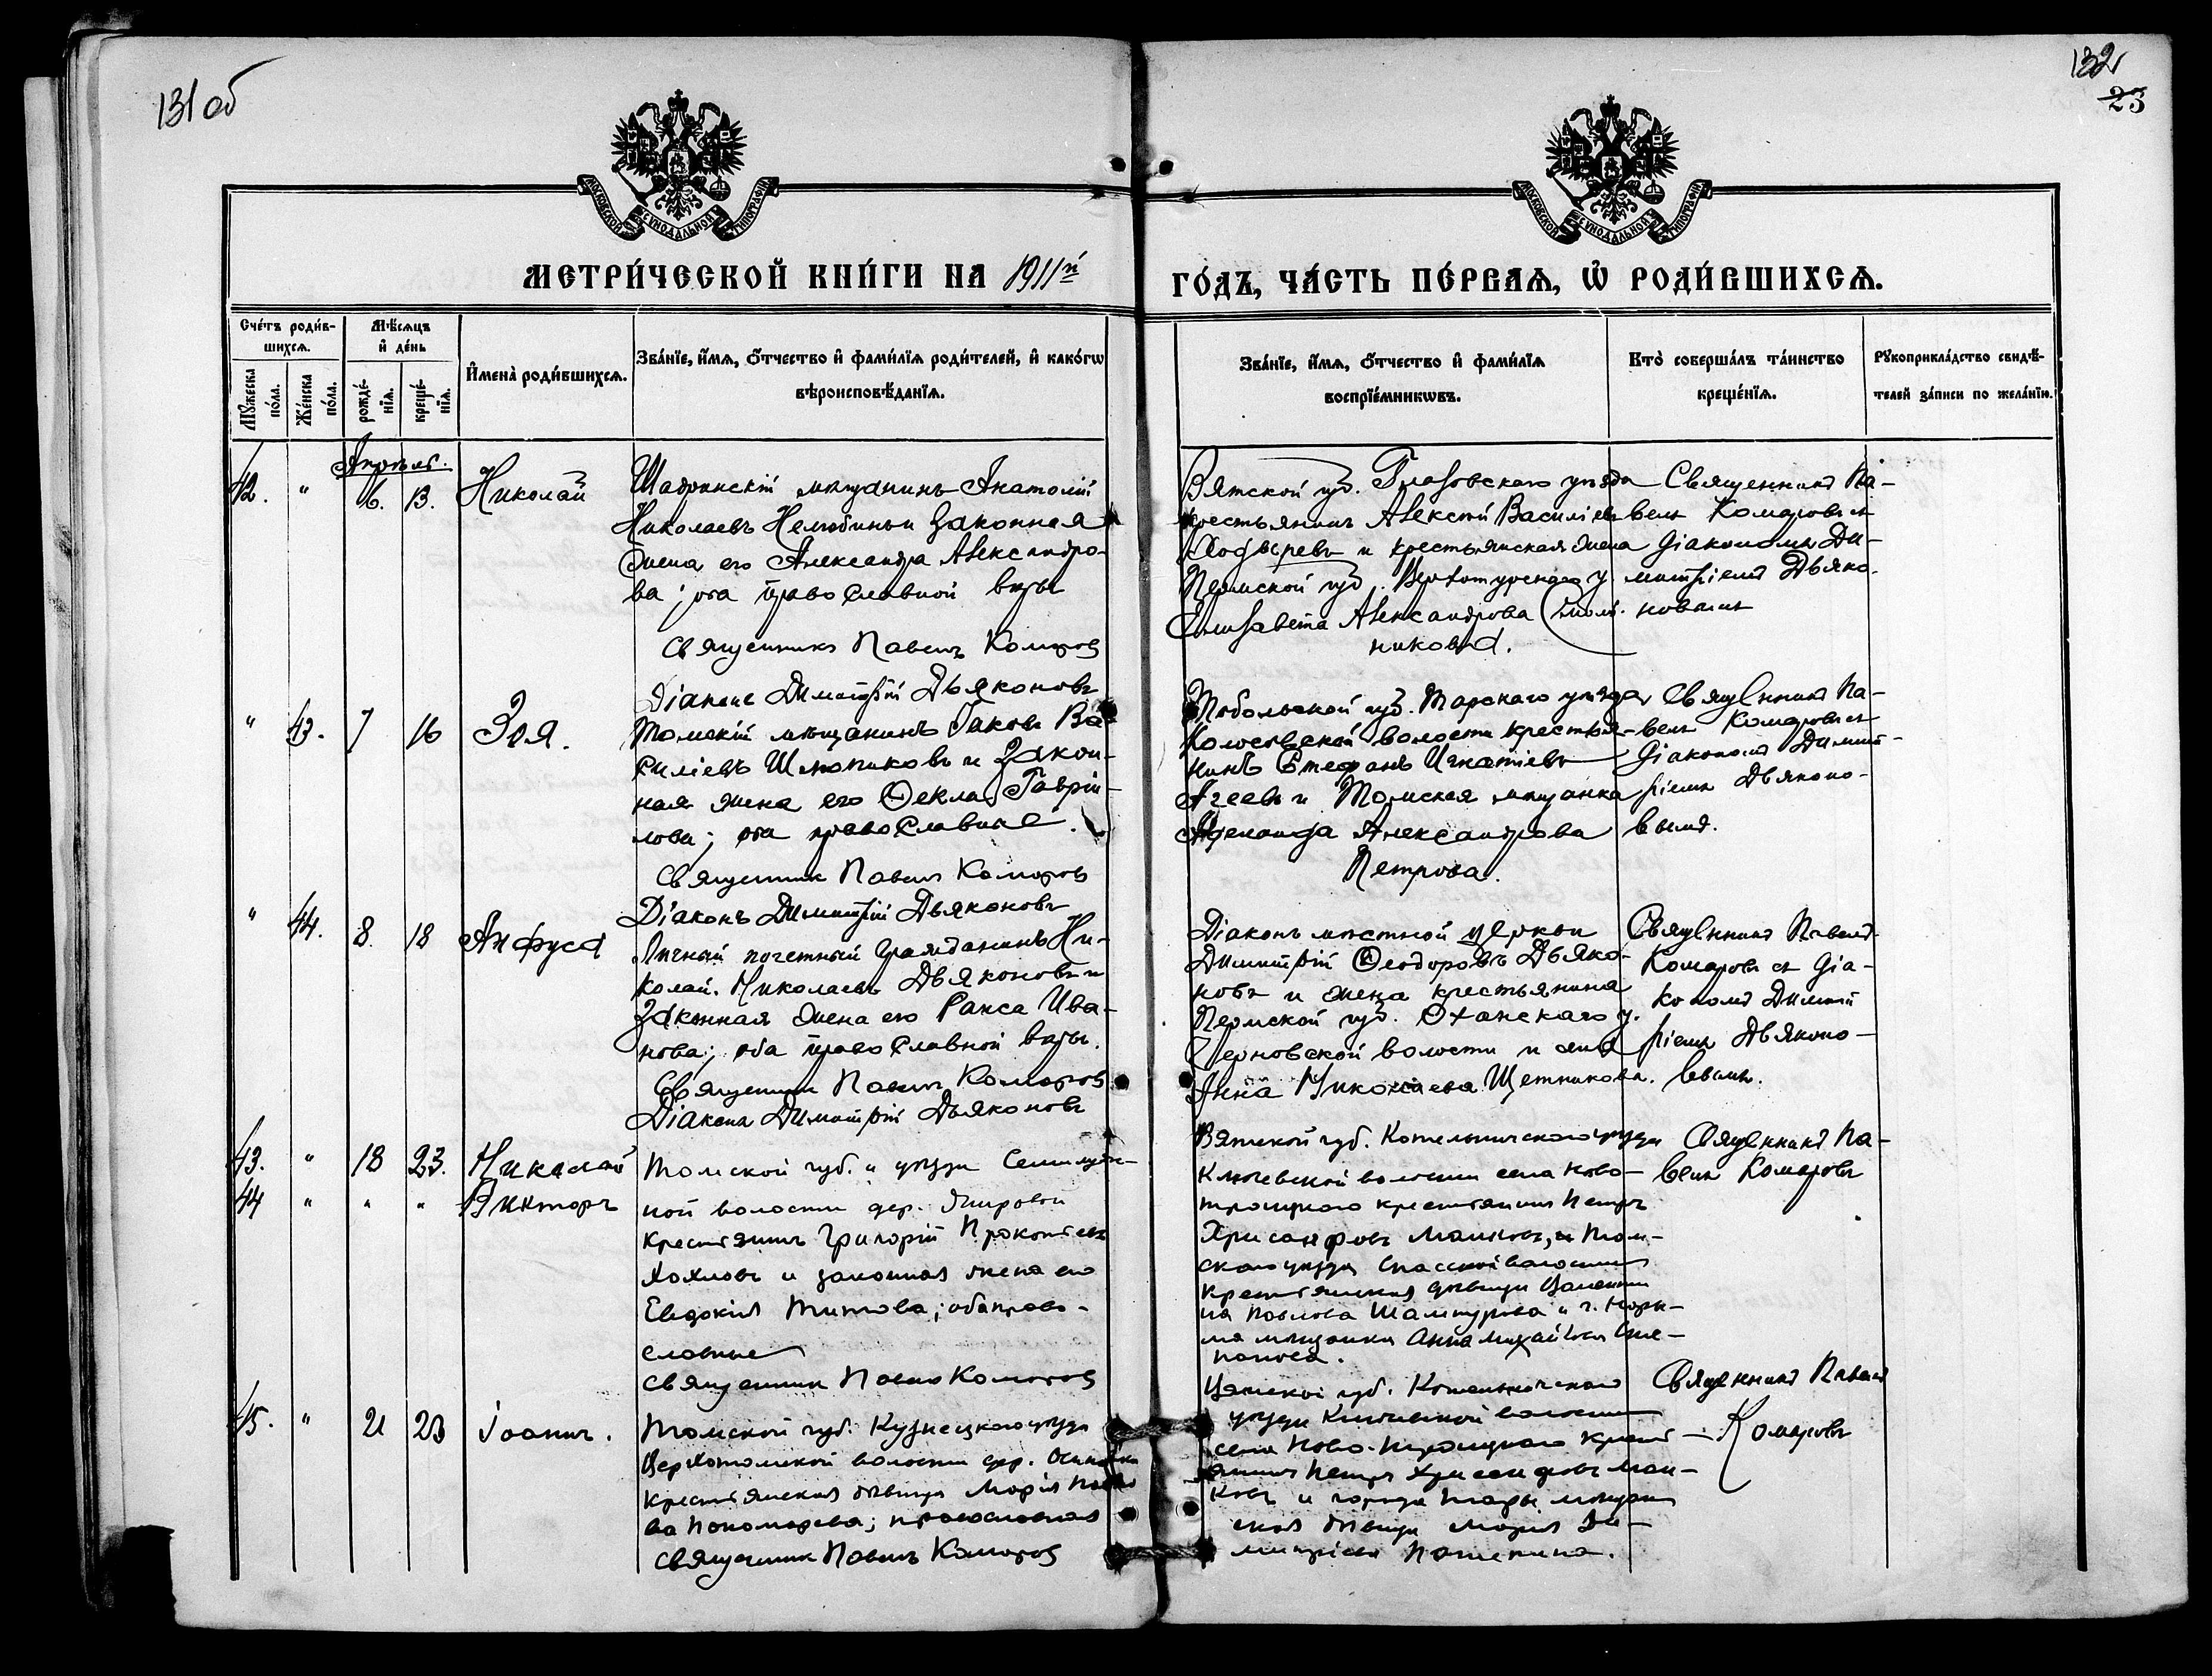 131 об
132
23
МОСКОВСКОЙ СѴНОДАЛЬНОЙ ТИПОГРАФІИ
МОСКОВСКОЙ СѴНОДАЛЬНОЙ ТИПОГРАФІИ
МЕТРИ́ЧЕСКОЙ КНИ́ГИ НА 1911й
ГО́ДЪ, ЧА́СТЬ ПЕ́РВАѦ, Ѡ РОДИ́ВШИХСѦ.
Сче́тъ роди́в-
шихсѧ.
Мѣ́сѧцъ
и де́нь
Мꙋ́жеска
по́ла.
Же́нска
по́ла.
рожде́-
нїѧ.
креще́-
нїѧ.
И҆мена̀ роди́вшихсѧ.
Зва́нїе, и҆́мѧ, ѻ҆́тчество и҆ фами́лїѧ роди́телей, и҆ како́гѡ
вѣроисповѣ́данїѧ.
Зва́нїе, и҆́мѧ, ѻ҆́тчество и҆ фами́лїѧ
воспрїе́мникѡвъ.
Кто̀ соверша́лъ та́инство
креще́нїѧ.
Рꙋкоприкла́дство свидѣ́-
телей за́писи по жела́нїю.
Апрѣль.
42. " 6. 13. Николай
Шадринскій мѣщанинъ Анатолій
Николаевъ Нелюбинъ и законная
жена его Александра Александро-
ва; оба православной вѣры
Священникъ Павелъ Комаровъ
Діаконъ Димитрій Дьяконовъ
Вятской губ. Глазовскаго уѣзда
крестьянинъ Алексій Василіевъ
и крестьянская жена
Пермской губ. Верхотурскаго у.
Елизавета Александрова
никова.
Священникъ Па-
велъ Комаровъ съ
діакономъ Ди-
митріемъ Дьяко-
новымъ
" 43. 7 16 Зоя.
Томскій мѣщанинъ Іаковъ Ва-
силіевъ и закон-
ная жена его Ѳекла Гаврій-
лова; оба православные.
Священникъ Павелъ Комаровъ
Діаконъ Димитрій Дьяконовъ
Тобольской губ. Тарскаго уѣзда
волости крестья-
нинъ Стефанъ Игнатіевъ
Агеевъ и Томская мѣщанка
Александрова
Петрова.
Священникъ Па-
велъ Комаровъ съ
діакономъ Димит-
ріемъ Дьяконо-
вымъ.
" 44. 8. 18 Анфуса
Личный почетный гражданинъ Ни-
колай Николаевъ Дьяконовъ и
законная жена его Раиса Ива-
нова; оба православной вѣры.
Священникъ Павелъ Комаровъ
Діаконъ Димитрій Дьяконовъ
Діаконъ мѣстной церкви
Димитрій Ѳеодоровъ Дьяко-
новъ и жена крестьянина
Пермской губ. Оханскаго у.
Черновской волости и села
Анна Николаева Щетникова.
Священникъ Павелъ
Комаровъ съ діа-
кономъ Димит-
ріемъ Дьяконо-
вымъ.
43. " 18 23. Николай
44 " " " Викторъ
Томской губ. и уѣзда Семилуж-
ной волости дер.
крестьянинъ Григорій Прокопьевъ
Хохловъ и законная жена его
Евдокія Титова; оба право-
славные
Священникъ Павелъ Комаровъ
Вятской губ. Котельническаго уѣзда
Ключевской волости села Ново-
троицкаго крестьянинъ Петръ
Хрисанфовъ и Том-
скаго уѣзда Спасской волости
крестьянская дѣвица Валенти-
на Павлова и г. Нары-
ма мѣщанка Анна Михайлова Сте-
панова.
Священникъ Па-
велъ Комаровъ
45. " 21 23 Іоаннъ.
Томской губ. Кузнецкаго уѣзда
Верхотомской волости дер.
крестьянская дѣвица Марія Павло-
ва Пономарева; православная
Священникъ Павелъ Комаровъ
Вятской губ. Котельническаго
уѣзда Ключевской волости
села Ново-Троицкаго крест-
янинъ Петръ Хрисанфовъ
и города Тары мѣщан-
ская дѣвица Марія Ди-
митріева
Священникъ Павелъ
Комаровъ